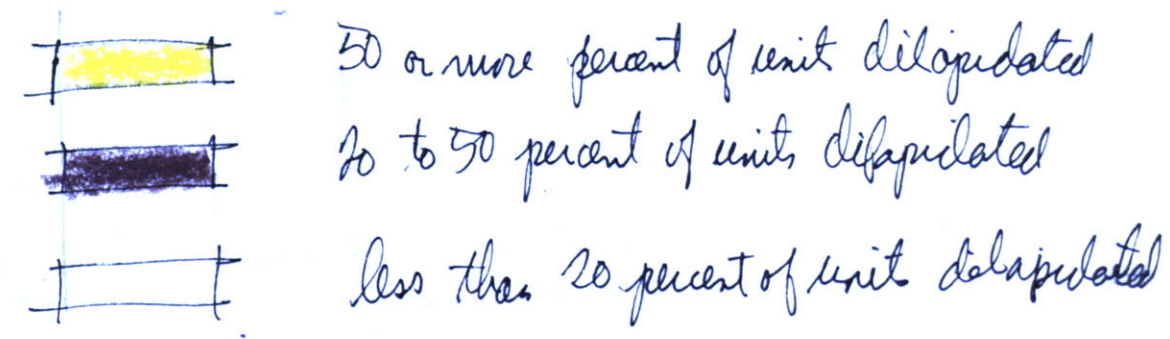 50 or more percent of units dilapidated
20 to 50 percent of units dilapidated
less than 20 percent of units delapidated